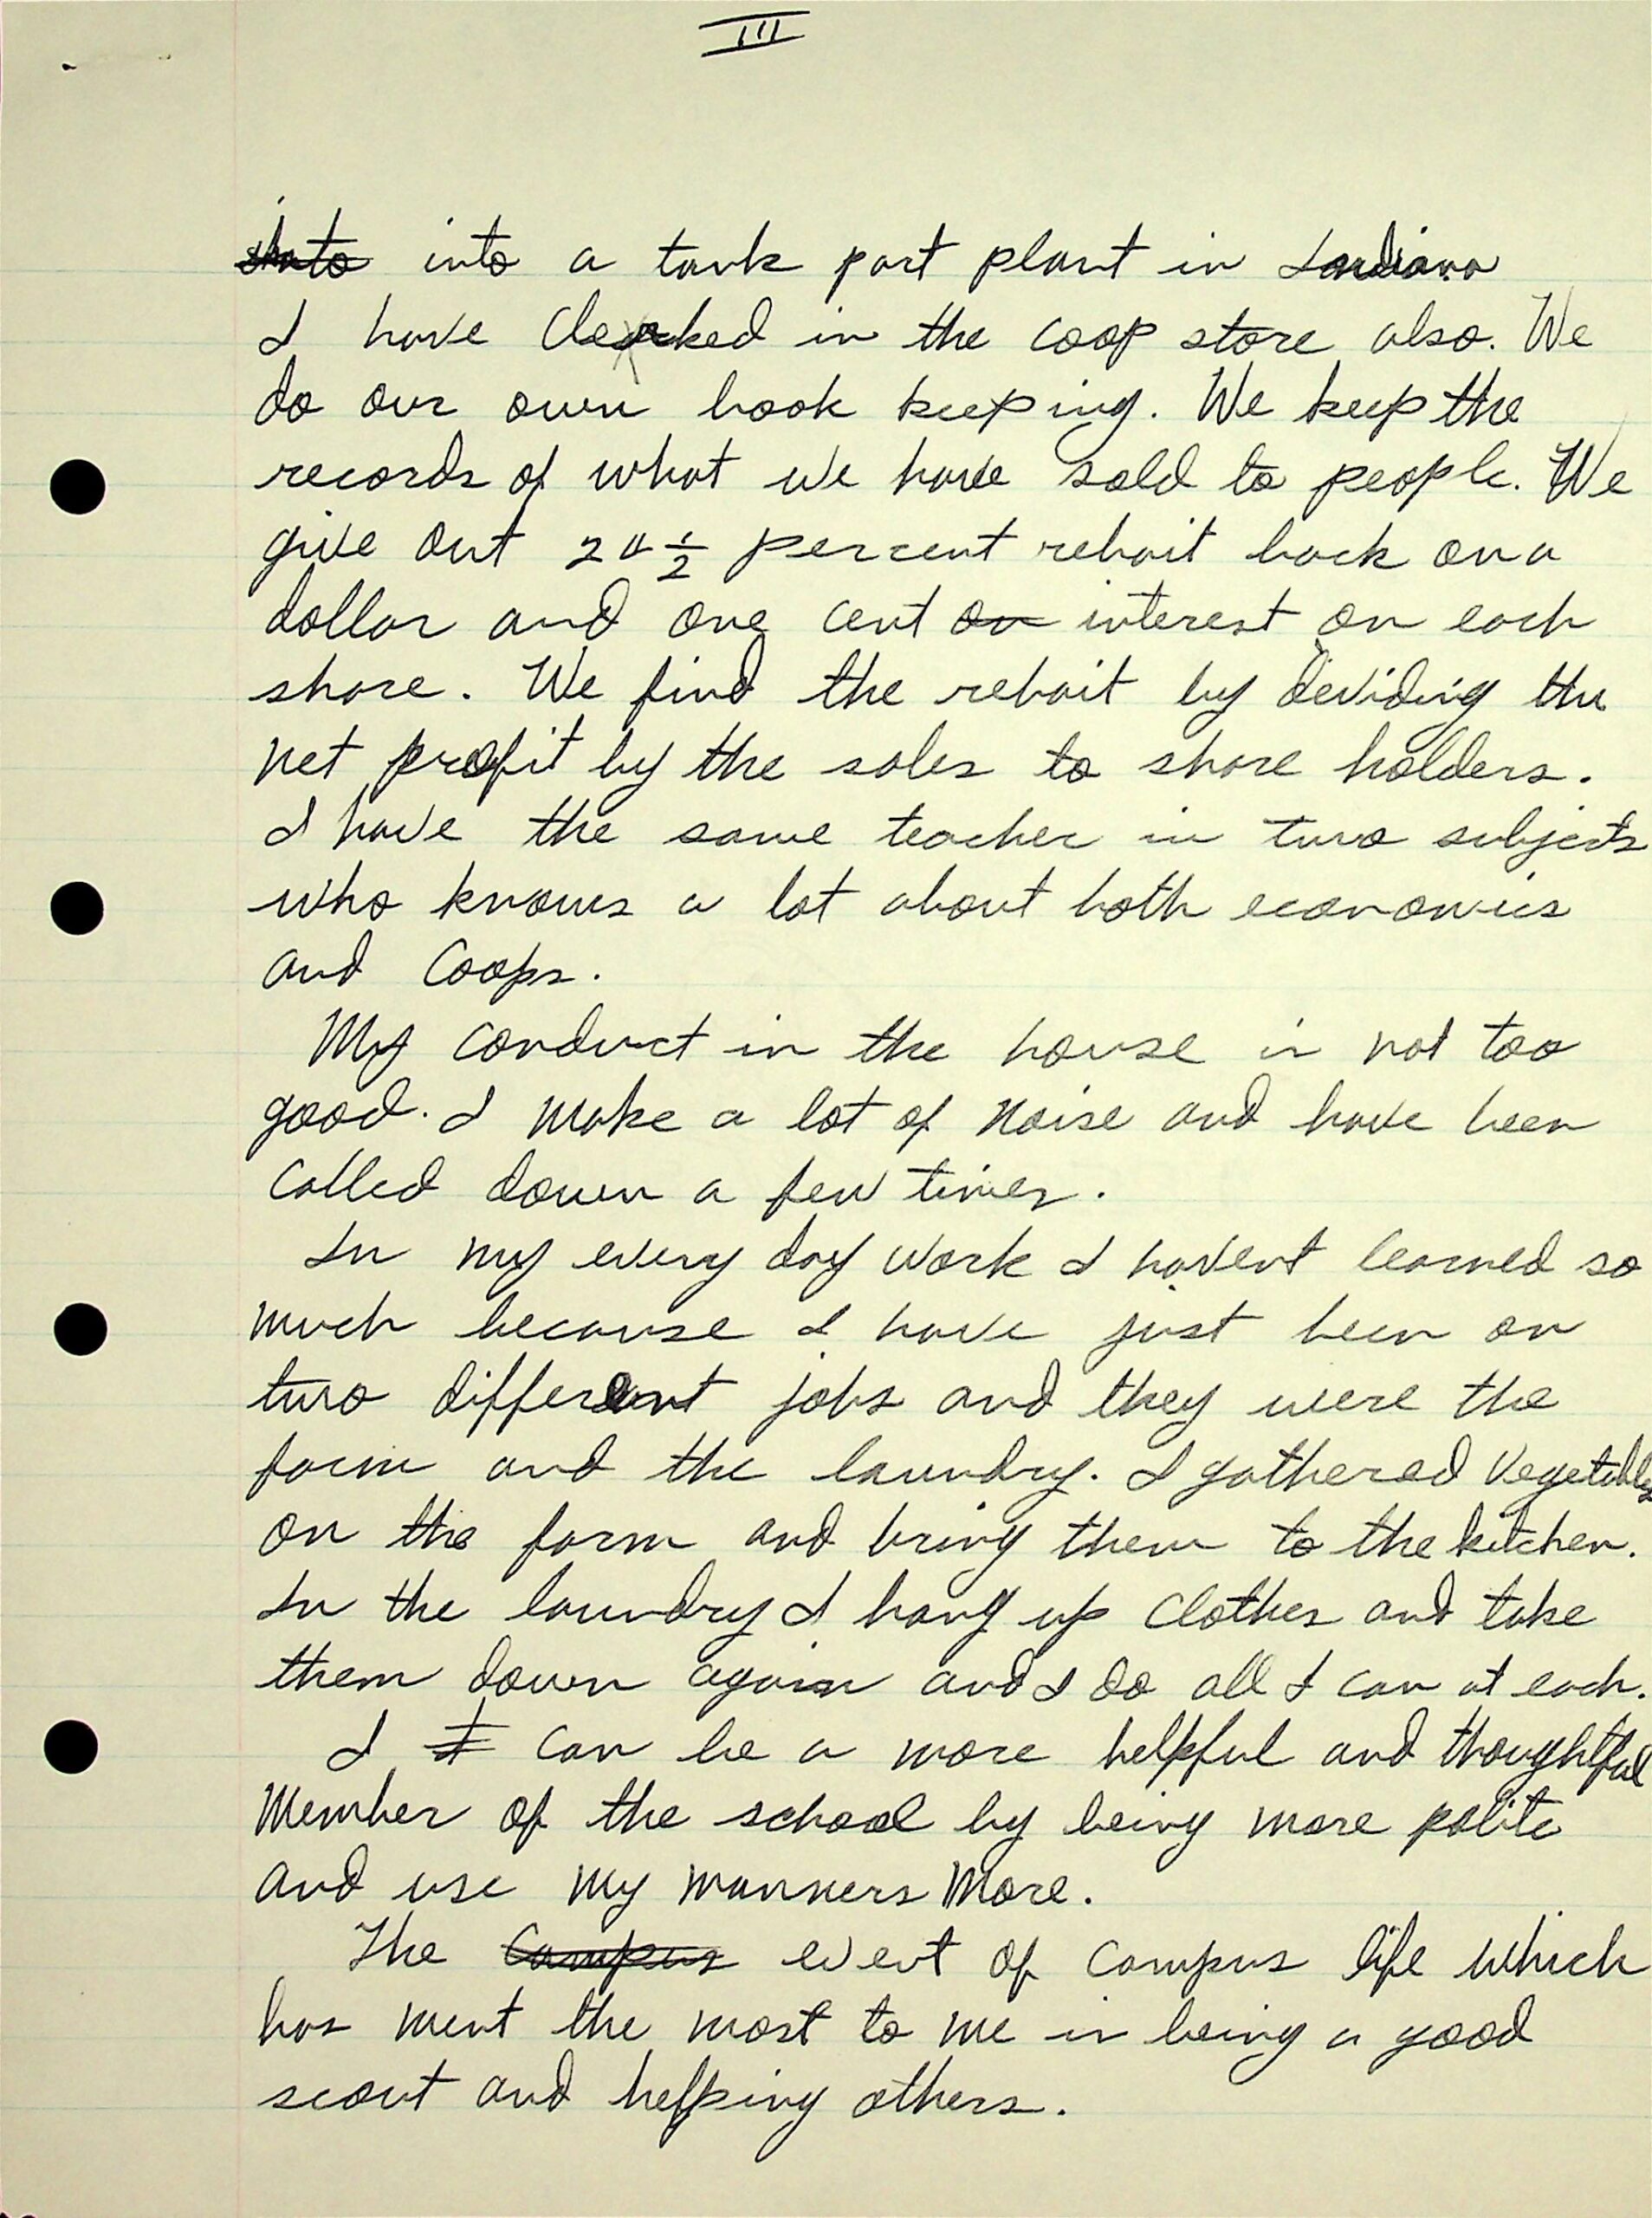 III
into a tank part plant in Indiana
I have clerked in the coop store also. We
do our own book keeping. We keep the
records of what we have sold to people. We
give out 20 1/2 percent rebait back on a
dollar and one cent on interest on each
share. We find the rebait by deviding the
net profit by the sales to share holders.
I have the same teacher in two subjects
who knows a lot about both economics
and Coops.
My conduct in the house is not too
good. I make a lot of noise and have been
called down a few times.
In my every day work I havent learned so
much because I have just been on
two different jobs and they were the
farm and the laundry. I gathered vegetables
on the farm and bring them to the kitchen.
In the laundry I hang up clothes and take
them down again and I do all I can at each.
I I can be a more helpful and thoughtful
member of the school by being more polite
and use my manners more.
The Campus event of campus life which
has ment the most to me is being a good
scout and helping others.